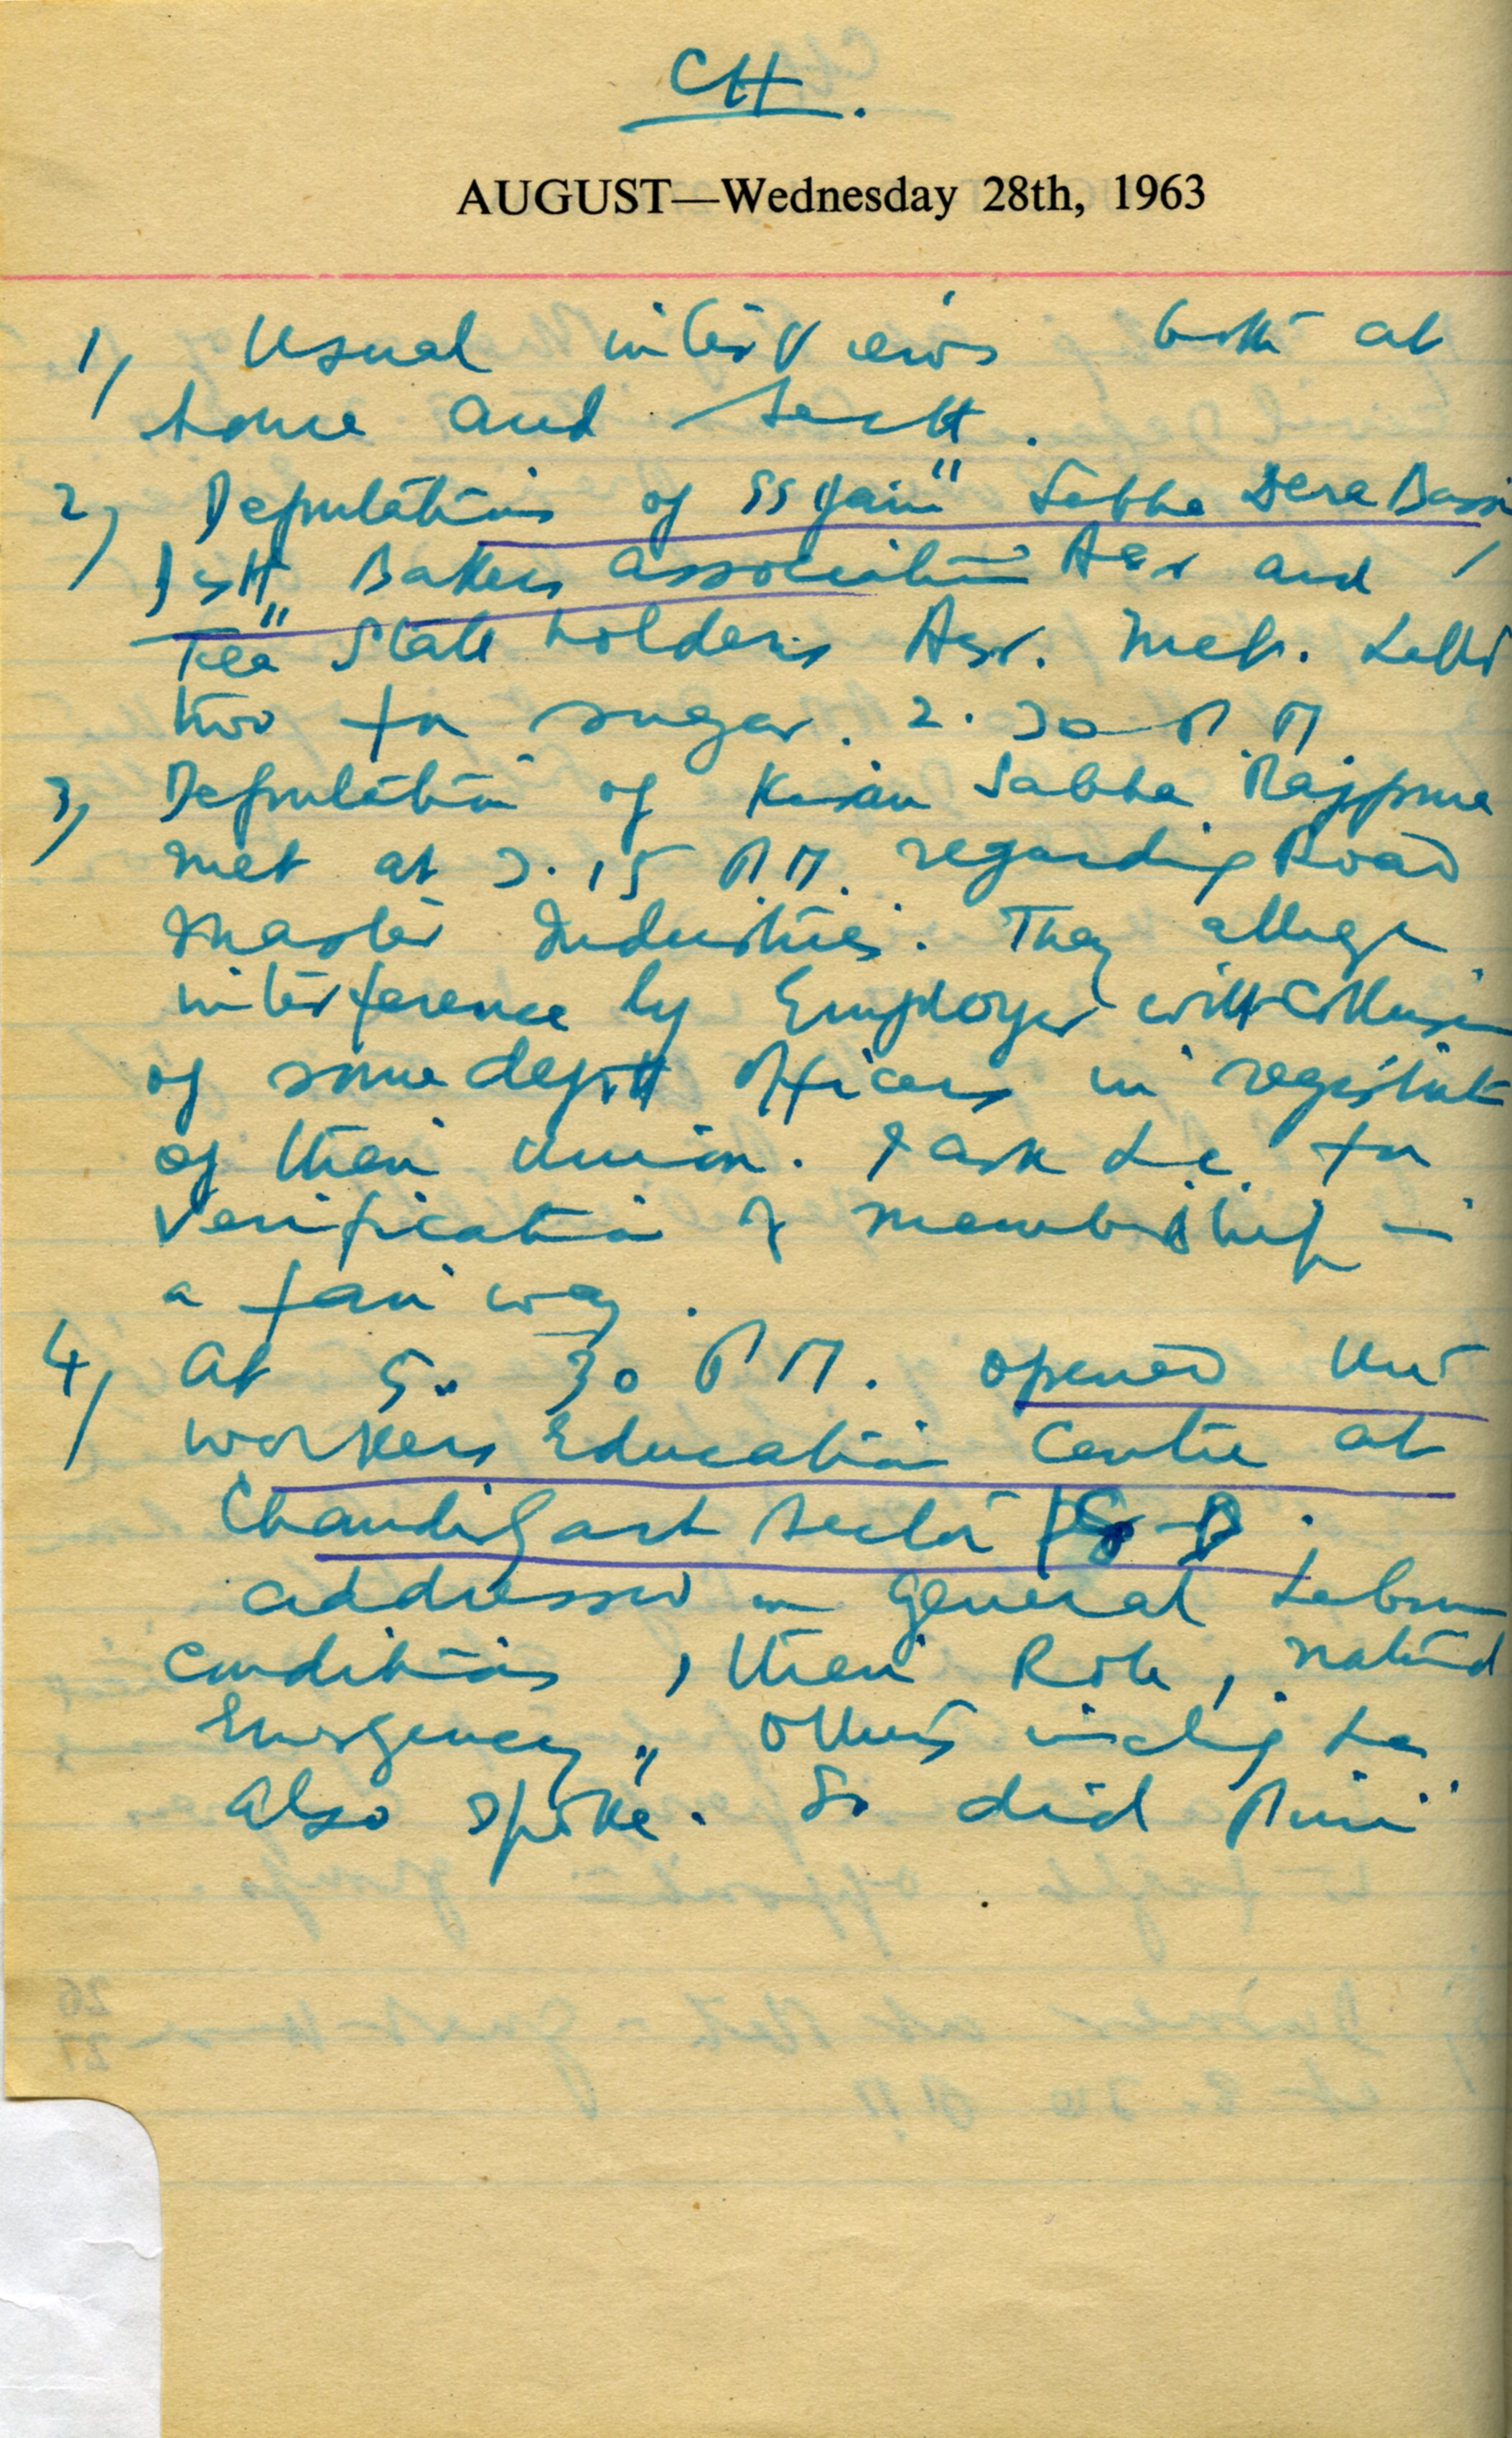 CH.
AUGUST—Wednesday 28th, 1963
1, Usual interviews both at
home and Sectt.
2, Deputations of SS Jain" Sabha Dera Bassi,
Bakers association Asr and
"Tea" State holders Asr. met. Latter
two for sugar. 2.30 P.M.
3, Deputation of Kisan Sabha Rajpura
met at 3.15 P.M. regarding Road
Master Industries. They allege
interference by Employer with Collusion
of some deptt officers in registrat
of their Union. I ask L.C. for
verification of membership in
a fair way.
4, At 5.30 P.M. opened the
workers Education Centre at
Chandigarh Sector 18-D.
addressed on general Labour
conditions, their Role, national
Emergency,, Others includg L.C.
also spoke. So did Puri